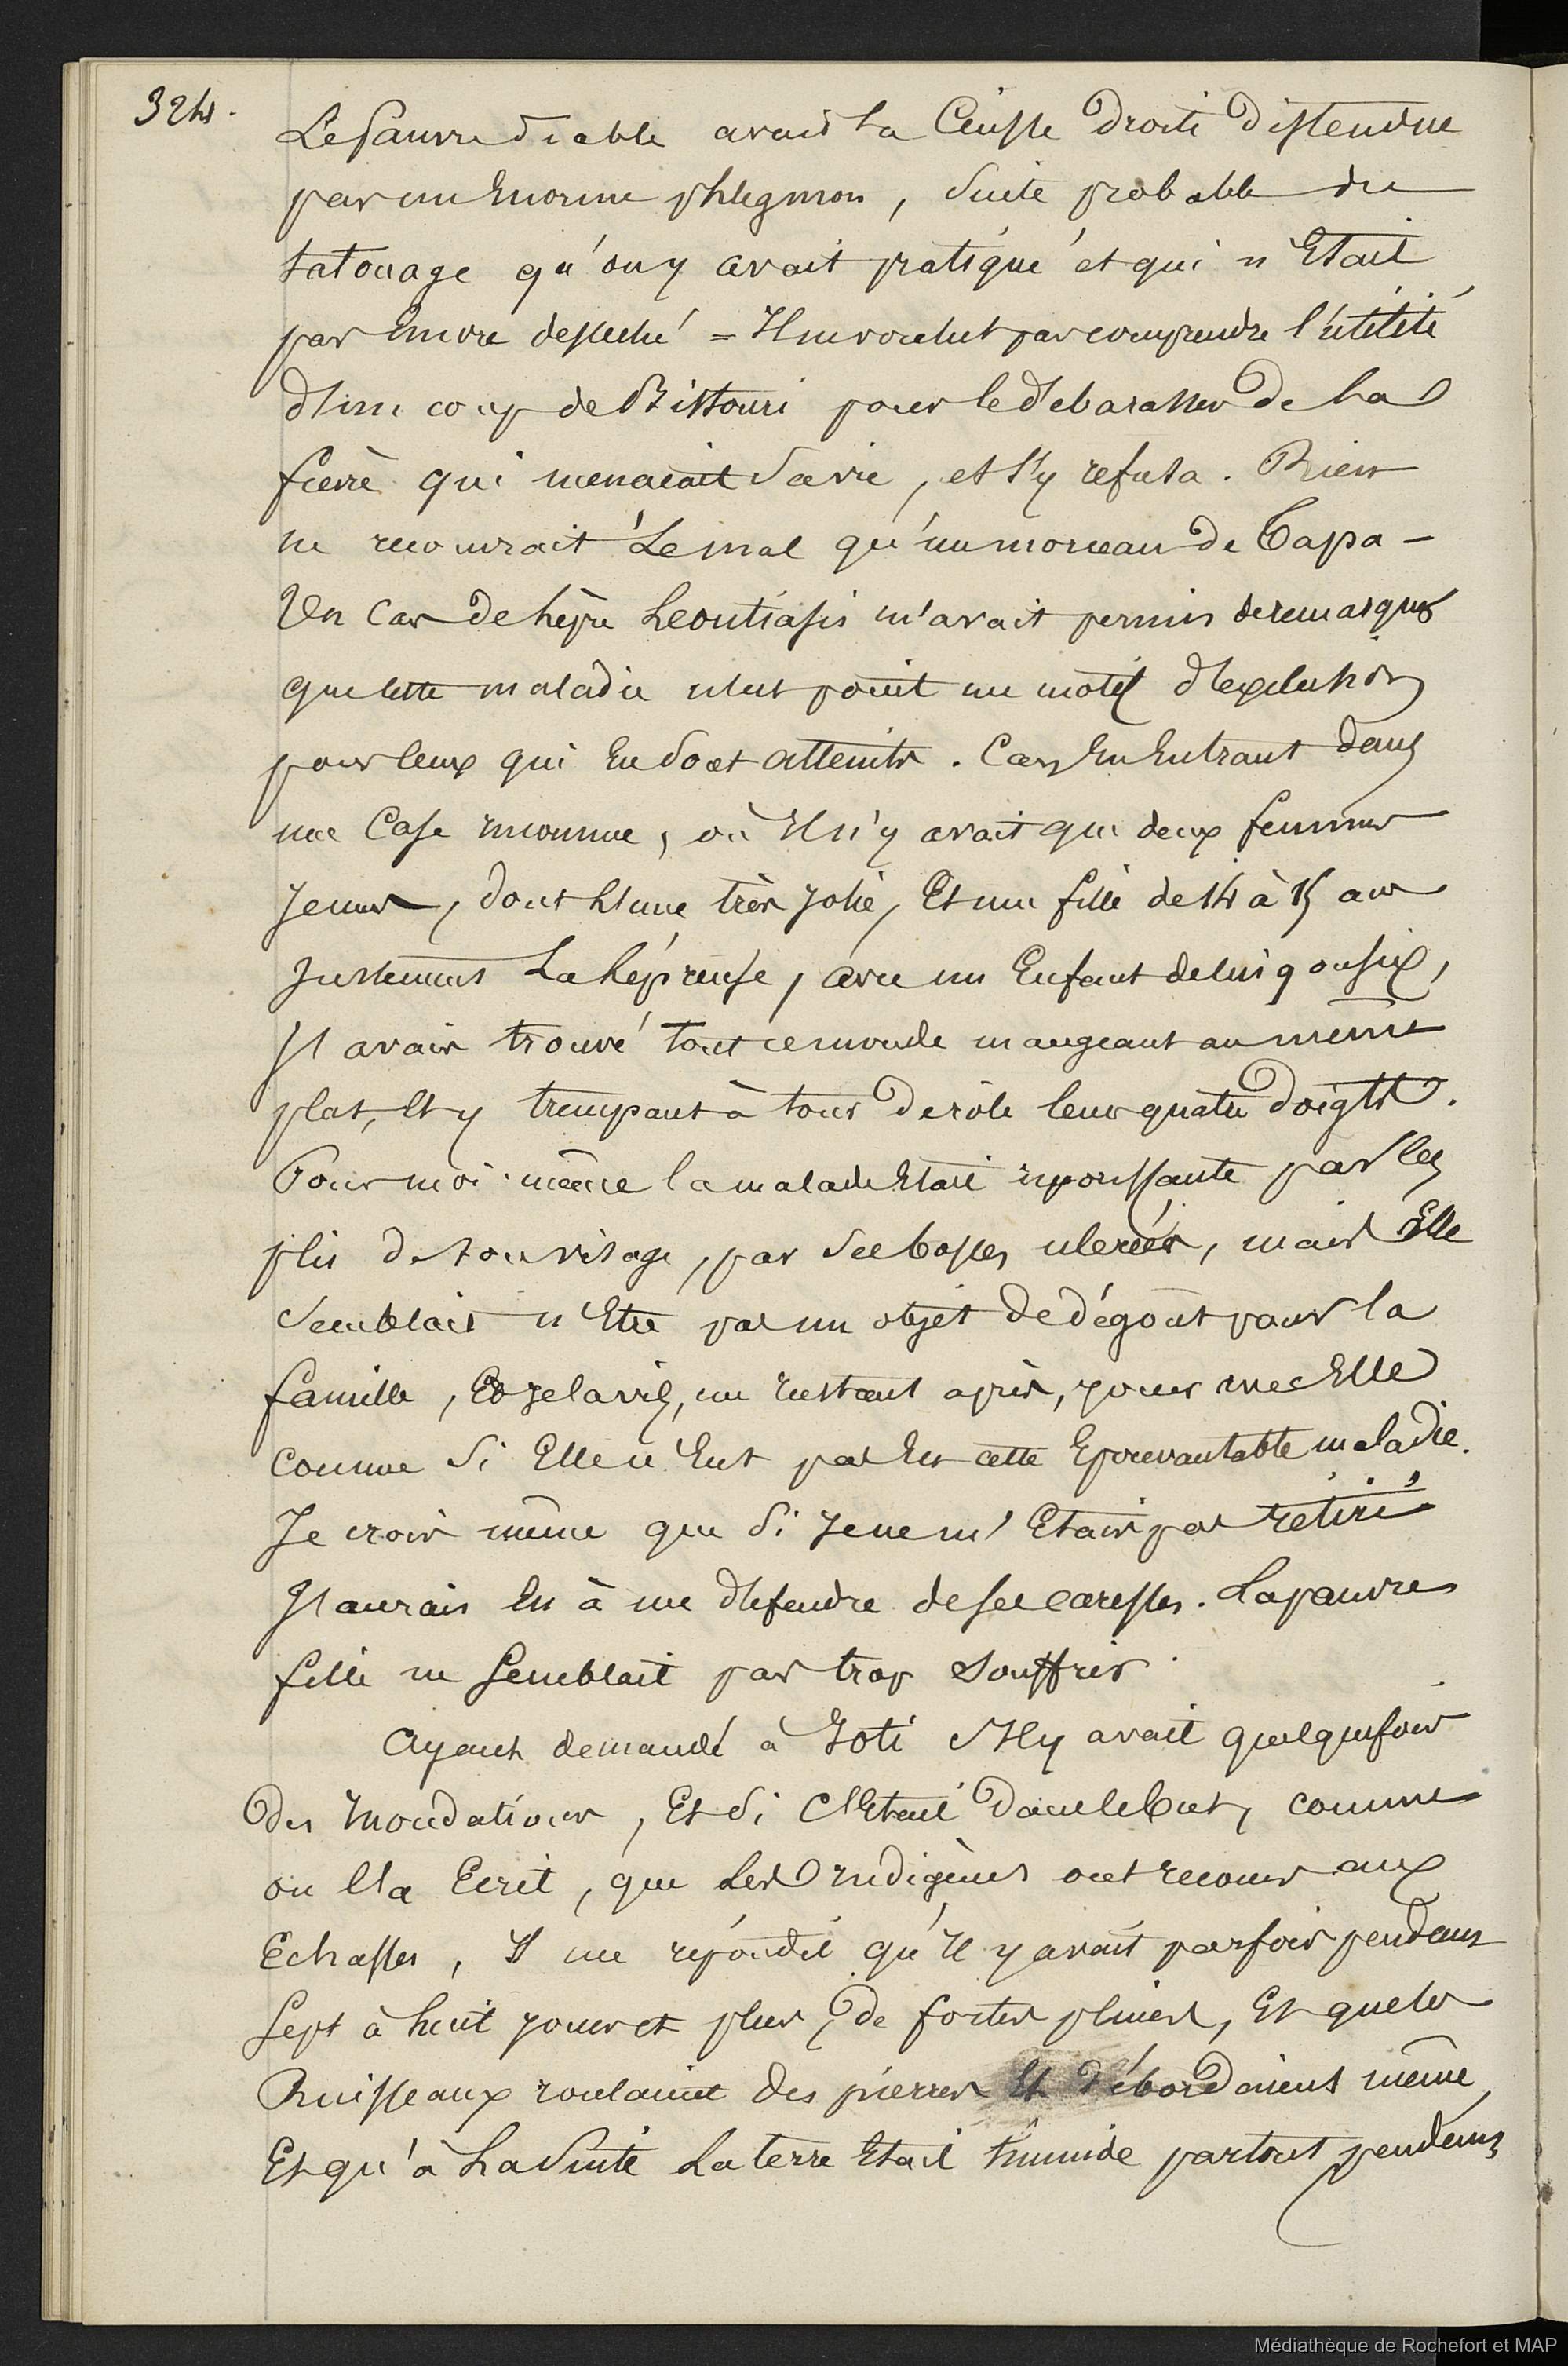 324.
Le pauvre diable avait la Cuisse droite distendue
par un Enorme phlegmon, suite probable du
tatouage qu'on y avait pratiqué et qui n'Etait
pas Encore desseché = Il ne voulut pas comprendre l'utilité
d'un coup de Bistouri pour le débarasser de la
fièvre qui menaçait sa vie, et s'y refusa. Rien
ne recouvrait le mal qu'un morceau de Tapa -
Un Cas de lèpre Leontiasis m'avait permis de remarquer
que cette maladie n'est point un motif d'exclusion
pour ceux qui En sont atteints. Car En Entrant dans
une Case inconnue, où Il n'y avait que deux femmes
jeunes, dont l'une très jolie, Et une fille de 14 à 15 ans
justement La lépreuse, avec un Enfant de cinq ou six,
J'avais trouvé tout ce monde mangeant au même
plat, Et y trempant à tour de rôle leurs quatre doigts.
Pour moi même la malade Etait repoussante par les
plis de son visage, par ses bosses ulcerées, mais Elle
semblait n'Etre pas un objet de dégoût pour la
famille, Et je la vis, un instant après, jouer avec Elle
comme si Elle n'Eut pas Eu cette Epouvantable maladie.
Je crois même que si je ne m'Etais pas retiré
J'aurais Eu à me défendre de ses caresses. La pauvre
fille ne semblait pas trop souffrir.
Ayant demandé à Yoti s'Il y avait quelquefois
des Inondations, Et si C'Etait dans le but, comme
on l'a Ecrit, que les Indigènes ont recours aux
Echasses, Il me répondit qu'Il y avait parfois pendant
sept à huit jours et plus, de fortes pluies, Et que les
Ruisseaux roulaient des pierres Et débordaient même,
Et qu'à La suite La terre Etait humide partout pendant
Médiathèque de Rochefort et MAP